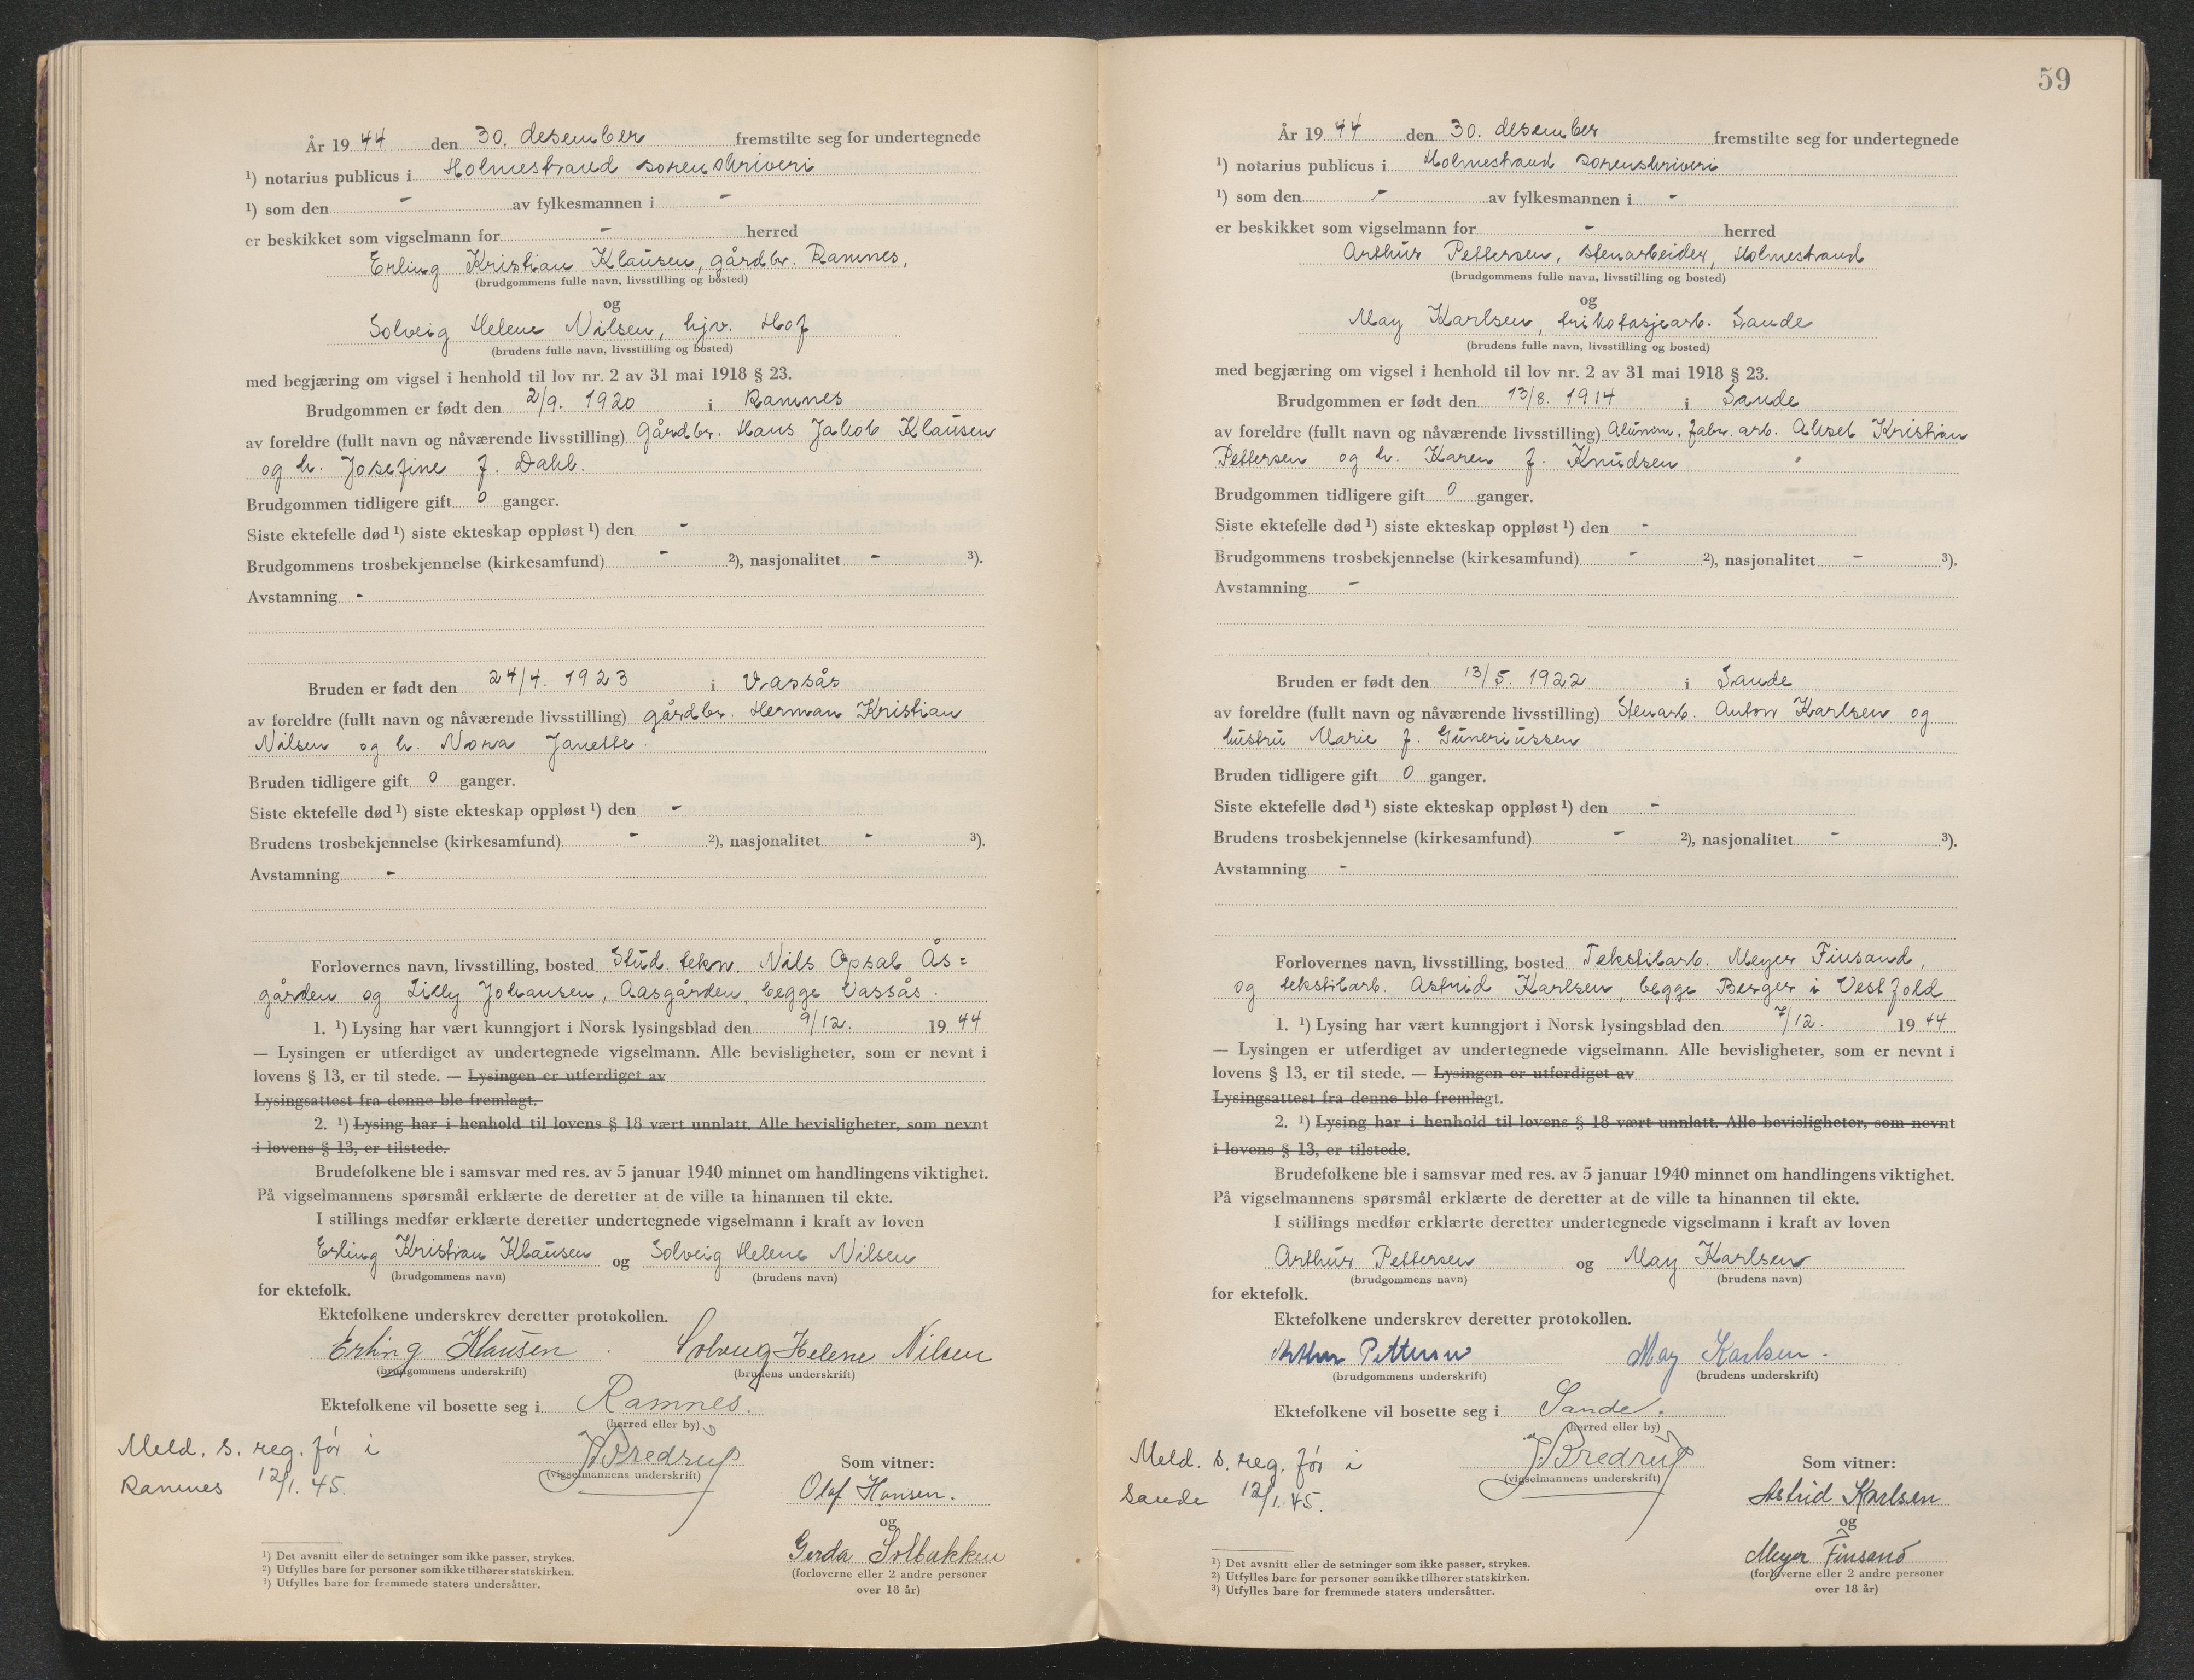 År 19 44 den 30. desember fremstilte seg for undertegnede
¹) notarius publicus i Holmestrand sorenskriveri
¹) som den - av fylkesmannen i -
er beskikket som vigselmann for - herred
Erling Kristian Klausen, gårdbr. Ramnes,
(brudgommens fulle navn, livsstilling og bosted)
og
Solveig Helene Nilsen, hjv. Hof
(brudens fulle navn, livsstilling og bosted)
med begjæring om vigsel i henhold til lov nr. 2 av 31 mai 1918 § 23.
Brudgommen er født den 2/9. 1920 i Ramnes
av foreldre (fullt navn og nåværende livsstilling) Gårdbr. Hans Jakob Klausen
og h. Josefine f. Dahl.
Brudgommen tidligere gift 0 ganger.
Siste ektefelle død ¹) siste ekteskap oppløst ¹) den -
Brudgommens trosbekjennelse (kirkesamfund) - ²), nasjonalitet - ³).
Avstamning -
Bruden er født den 24/4. 1923 i Vassås
av foreldre (fullt navn og nåværende livsstilling) gårdbr. Herman Kristian
Nilsen og h. Nora Janette.
Bruden tidligere gift 0 ganger.
Siste ektefelle død ¹) siste ekteskap oppløst ¹) den -
Brudens trosbekjennelse (kirkesamfund) - ²), nasjonalitet - ³).
Avstamning -
Forlovernes navn, livsstilling, bosted Stud. tekn. Nils Opsal Ås=
gården og Lilly Johansen, Aasgården, begge Vassås.
1. ¹) Lysing har vært kunngjort i Norsk lysingsblad den 9/12. 19 44
— Lysingen er utferdiget av undertegnede vigselmann. Alle bevisligheter, som er nevnt i
lovens § 13, er til stede. — Lysingen er utferdiget av
Lysingsattest fra denne ble fremlagt.
2. ¹) Lysing har i henhold til lovens § 18 vært unnlatt. Alle bevisligheter, som nevnt
i lovens § 13, er tilstede.
Brudefolkene ble i samsvar med res. av 5 januar 1940 minnet om handlingens viktighet.
På vigselmannens spørsmål erklærte de deretter at de ville ta hinannen til ekte.
I stillings medfør erklærte deretter undertegnede vigselmann i kraft av loven
Erling Kristian Klausen og Solveig Helene Nilsen
(brudgommens navn) (brudens navn)
for ektefolk.
Ektefolkene underskrev deretter protokollen.
Erling Klausen. Solveig Helene Nilsen
(brudgommens underskrift) (brudens underskrift)
Ektefolkene vil bosette seg i Ramnes.
(herred eller by)
Meld. s. reg. fór i
Ramnes 12/1. 45.
Bredrup
(vigselmannens underskrift)
Som vitner:
Olaf Hansen.
og
Gerda Solbakken
(forloverne eller 2 andre personer
over 18 år)
¹) Det avsnitt eller de setninger som ikke passer, strykes.
²) Utfylles bare for personer som ikke tilhører statskirken.
³) Utfylles bare for fremmede staters undersåtter.
59
År 19 44 den 30. desember fremstilte seg for undertegnede
¹) notarius publicus i Holmestrand sorenskriveri
¹) som den - av fylkesmannen i -
er beskikket som vigselmann for - herred
Arthur Pettersen, stenarbeider, Holmestrand
(brudgommens fulle navn, livsstilling og bosted)
og
May Karlsen, trikotasjearb. Sande
(brudens fulle navn, livsstilling og bosted)
med begjæring om vigsel i henhold til lov nr. 2 av 31 mai 1918 § 23.
Brudgommen er født den 13/8. 1914 i Sande
av foreldre (fullt navn og nåværende livsstilling) Alumin. fabr. arb. Aksel Kristian
Pettersen og h. Karen f. Knudsen
Brudgommen tidligere gift 0 ganger.
Siste ektefelle død ¹) siste ekteskap oppløst ¹) den -
Brudgommens trosbekjennelse (kirkesamfund) - ²), nasjonalitet - ³).
Avstamning -
Bruden er født den 13/5. 1922 i Sande
av foreldre (fullt navn og nåværende livsstilling) Stenarb. Anton Karlsen og
hustru Marie f. Guneriussen
Bruden tidligere gift 0 ganger.
Siste ektefelle død ¹) siste ekteskap oppløst ¹) den -
Brudens trosbekjennelse (kirkesamfund) - ²), nasjonalitet - ³).
Avstamning -
Forlovernes navn, livsstilling, bosted Tekstilarb. Meyer Finsand,
og tekstilarb. Astrid Karlsen, begge Berger i Vestfold
1. ¹) Lysing har vært kunngjort i Norsk lysingsblad den 7/12. 19 44
— Lysingen er utferdiget av undertegnede vigselmann. Alle bevisligheter, som er nevnt i
lovens § 13, er til stede. — Lysingen er utferdiget av
Lysingsattest fra denne ble fremlagt.
2. ¹) Lysing har i henhold til lovens § 18 vært unnlatt. Alle bevisligheter, som nevnt
i lovens § 13, er tilstede.
Brudefolkene ble i samsvar med res. av 5 januar 1940 minnet om handlingens viktighet.
På vigselmannens spørsmål erklærte de deretter at de ville ta hinannen til ekte.
I stillings medfør erklærte deretter undertegnede vigselmann i kraft av loven
Arthur Pettersen og May Karlsen
(brudgommens navn) (brudens navn)
for ektefolk.
Ektefolkene underskrev deretter protokollen.
Arthur Pettersen May Karlsen.
(brudgommens underskrift) (brudens underskrift)
Ektefolkene vil bosette seg i Sande.
(herred eller by)
Meld. s. reg. fór i
Sande 12/1. 45.
Bredrup
(vigselmannens underskrift)
Som vitner:
Astrid Karlsen
og
Meyer Finsand
(forloverne eller 2 andre personer
over 18 år)
¹) Det avsnitt eller de setninger som ikke passer, strykes.
²) Utfylles bare for personer som ikke tilhører statskirken.
³) Utfylles bare for fremmede staters undersåtter.